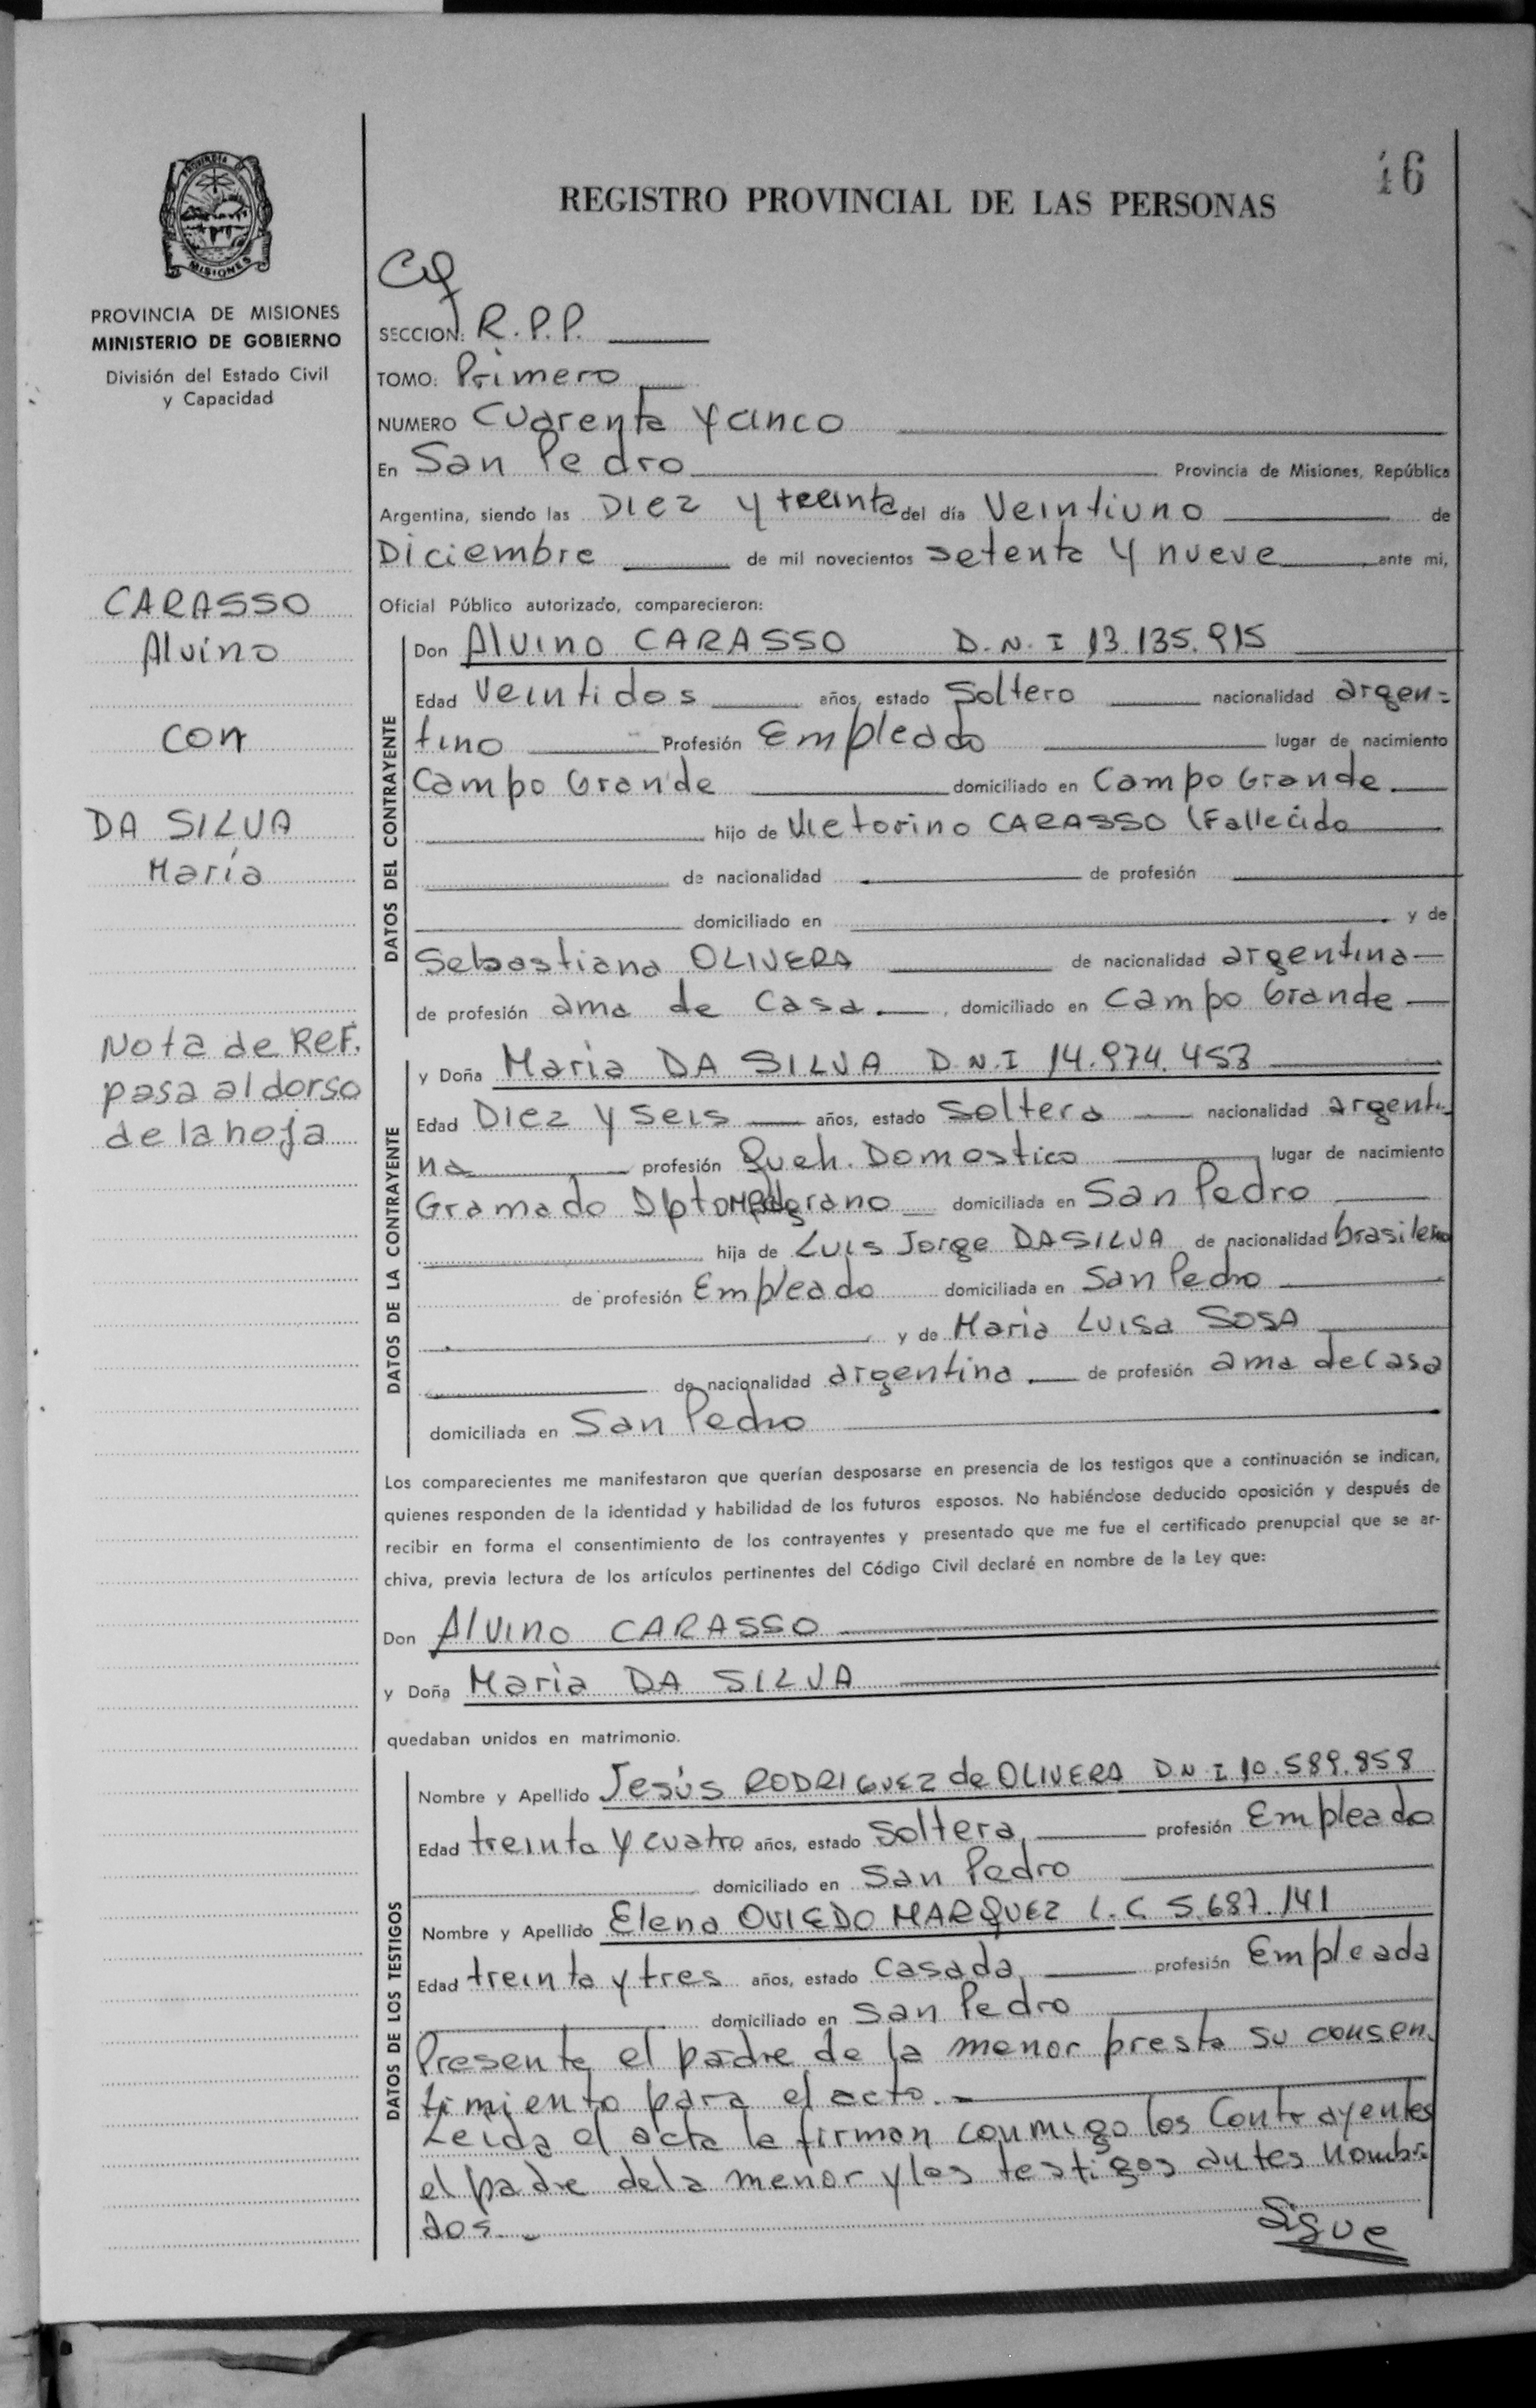 46
REGISTRO PROVINCIAL DE LAS PERSONAS
PROVINCIA DE
MISIONES
PROVINCIA DE MISIONES
MINISTERIO DE GOBIERNO
División del Estado Civil
y Capacidad
CARASSO
Alvino
con
DA SILVA
María
Nota de Ref.
pasa al dorso
de la hoja
SECCION: R.P.P.
TOMO: Primero
NUMERO Cuarenta y cinco
En San Pedro Provincia de Misiones, República
Argentina, siendo las Diez y treinta del día Veintiuno de
Diciembre de mil novecientos setenta y nueve ante mi,
Oficial Público autorizado, comparecieron:
DATOS DEL CONTRAYENTE
Don Alvino CARASSO D.N.I 13.135.915
Edad Veintidos años, estado Soltero nacionalidad argen=
tino Profesión Empleado lugar de nacimiento
Campo Grande domiciliado en Campo Grande
hijo de Victorino CARASSO (Fallecido
de nacionalidad de profesión
domiciliado en y de
Sebastiana OLIVERA de nacionalidad argentina
de profesión ama de casa. , domiciliado en Campo Grande
DATOS DE LA CONTRAYENTE
y Doña Maria DA SILVA D.N.I 14.974.453
Edad Diez y seis años, estado Soltera nacionalidad argenti
na profesión Queh. Domestico lugar de nacimiento
Gramado Dpto domiciliada en San Pedro
hija de Luis Jorge DASILVA de nacionalidad brasileño
de profesión Empleado domiciliada en San Pedro
y de Maria Luisa SOSA
de nacionalidad argentina. de profesión ama de casa
domiciliada en San Pedro
Los comparecientes me manifestaron que querían desposarse en presencia de los testigos que a continuación se indican,
quienes responden de la identidad y habilidad de los futuros esposos. No habiéndose deducido oposición y después de
recibir en forma el consentimiento de los contrayentes y presentado que me fue el certificado prenupcial que se ar-
chiva, previa lectura de los artículos pertinentes del Código Civil declaré en nombre de la Ley que:
Don Alvino CARASSO
y Doña Maria DA SILVA
quedaban unidos en matrimonio.
DATOS DE LOS TESTIGOS
Nombre y Apellido Jesús RODRIGUEZ de OLIVERA D.N.I 10.589.858
Edad treinta y cuatro años, estado Soltera profesión Empleado
domiciliado en San Pedro
Nombre y Apellido Elena OVIEDO MARQUEZ L.C 5.687.141
Edad treinta y tres años, estado Casada profesión Empleada
domiciliado en San Pedro
Presente el padre de la menor presta su consen
timiento para el acto.-
Leida el acta la firman conmigo los Contrayentes
el padre de la menor y los testigos antes nombra
dos.-
Sigue